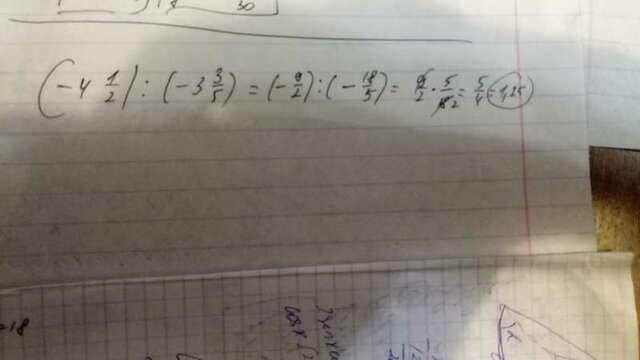 30
(-4 1/2) : (-3 3/5) = (-9/2) : (-18/5) = 9/2 · 5/18 2 = 5/4 = 1,25
=18